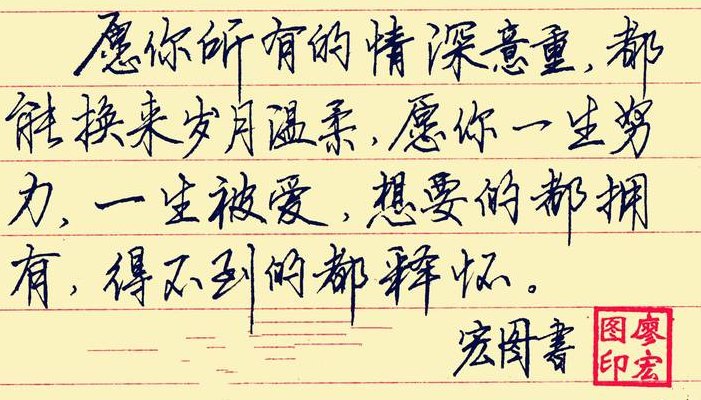 愿你所有的情深意重，都
能换来岁月温柔，愿你一生努
力，一生被爱，想要的都拥
有，得不到的都释怀。
宏图书
廖宏
图印